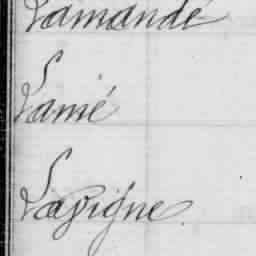 Lamandé
Lamé
Lavigne